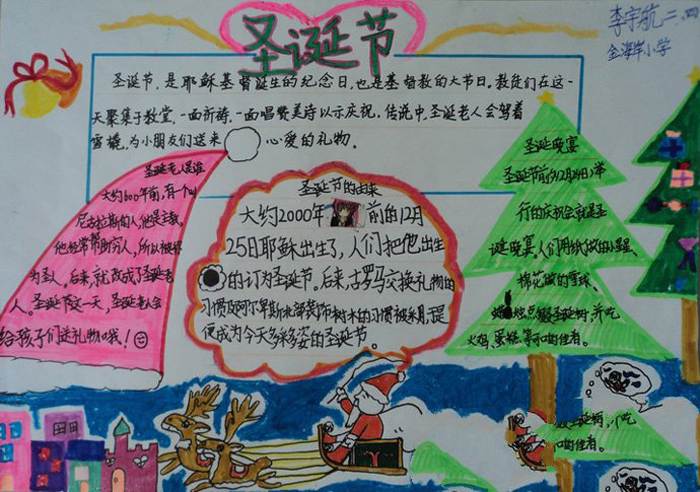 圣诞节
李宇航二、四
金海岸小学
圣诞节,是耶稣基督诞生的纪念日,也是基督教的大节日。教徒们在这一
天聚集于教堂,一面祈祷,一面唱赞美诗以示庆祝。传说中,圣诞老人会驾着
雪橇,为小朋友们送来心爱的礼物。
圣诞老人是谁
大约1600年前,有个叫
尼古拉斯的人,他是主教,
他经常帮助穷人,所以被称
为圣人。后来,就改成了圣诞老
人。圣诞节这一天,圣诞老人会
给孩子们送礼物哦!
圣诞节的由来
大约2000年前的12月
25日耶稣出生了,人们把他出生
的订为圣诞节。后来,古罗马交换礼物的
习惯及阿尔卑斯北部装饰树木的习惯被采用,
便成为今天多采多姿的圣诞节。
圣诞晚宴
圣诞节前夕12月24日举
行的庆祝会就是圣
诞晚宴,人们用纸做的小星星、
棉花做的雪球、
蜡烛点缀圣诞树,并吃
火鸡、蛋糕等可口的佳肴。
圣诞树,并吃
可口的佳肴。